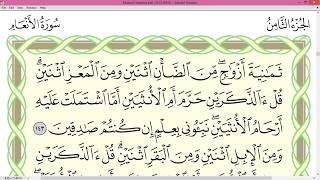 الجُزْءُ الثَّامِنُ
سُورَةُ الأَنْعَامِ
ثَمَٰنِيَةَ أَزْوَٰجٍ ۖ مِّنَ ٱلضَّأْنِ ٱثْنَيْنِ وَمِنَ ٱلْمَعْزِ ٱثْنَيْنِ ۗ
قُلْ ءَآلذَّكَرَيْنِ حَرَّمَ أَمِ ٱلْأُنثَيَيْنِ أَمَّا ٱشْتَمَلَتْ عَلَيْهِ
أَرْحَامُ ٱلْأُنثَيَيْنِ ۖ نَبِّـُٔونِى بِعِلْمٍ إِن كُنتُمْ صَٰدِقِينَ ١٤٣
وَمِنَ ٱلْإِبِلِ ٱثْنَيْنِ وَمِنَ ٱلْبَقَرِ ٱثْنَيْنِ ۗ قُلْ ءَآلذَّكَرَيْنِ